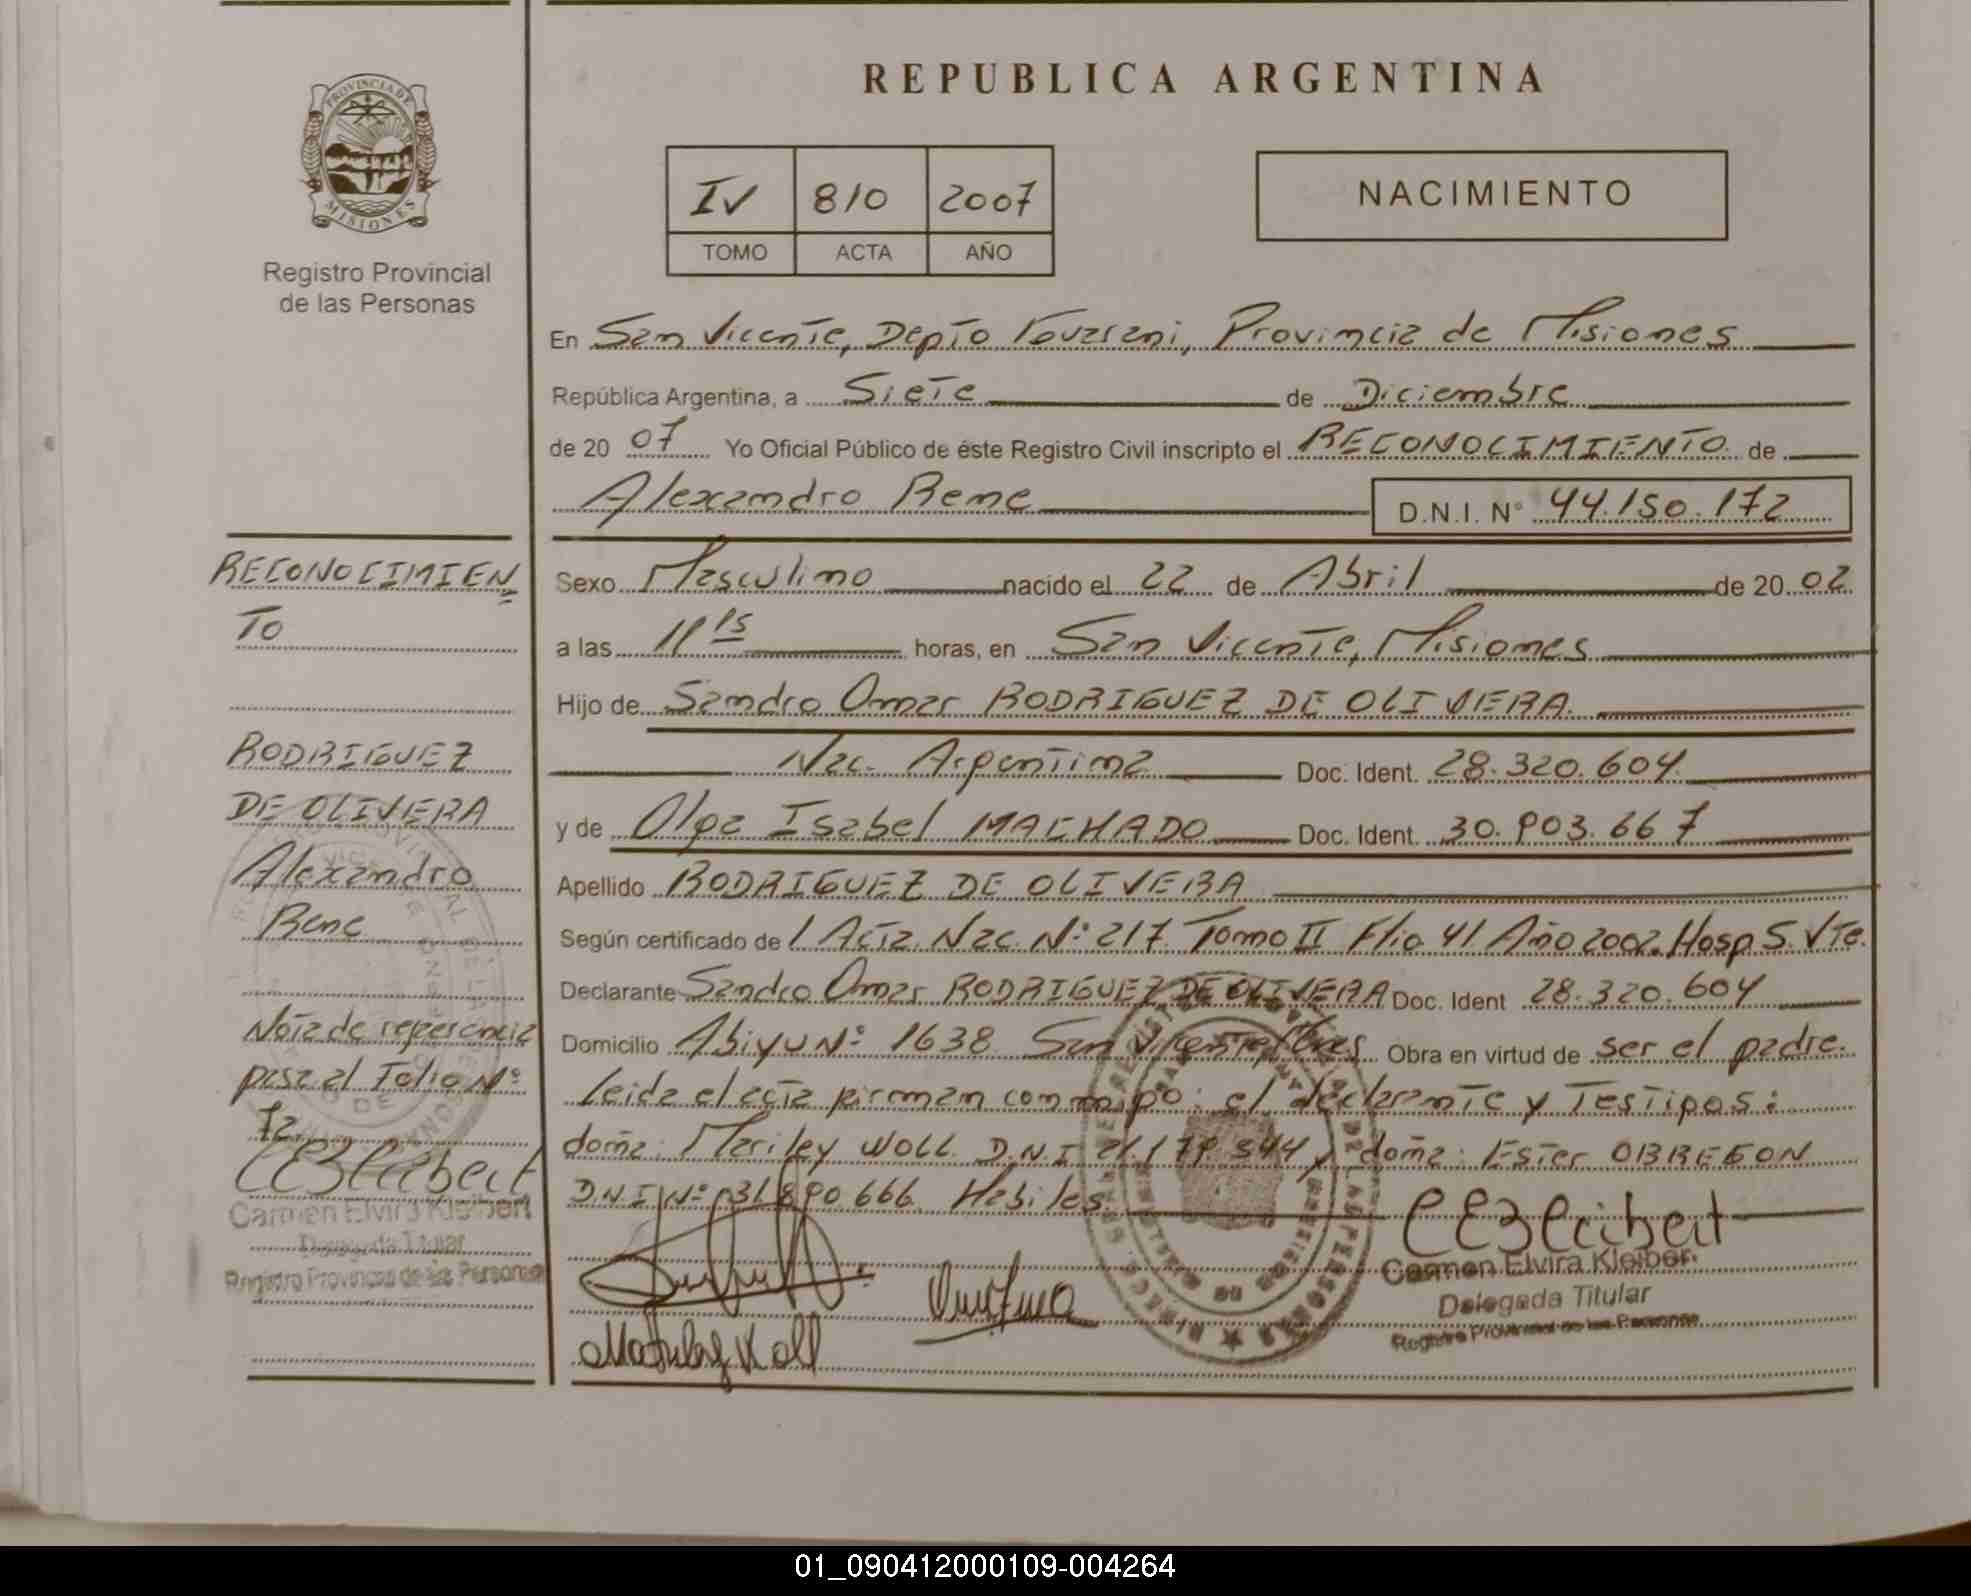 PROVINCIA DE
MISIONES
Registro Provincial
de las Personas
REPUBLICA ARGENTINA
IV 810 2007
TOMO ACTA AÑO
NACIMIENTO
En San Vicente, Depto Guarani, Provincia de Misiones
República Argentina, a Siete de Diciembre
de 20 07 Yo Oficial Público de éste Registro Civil inscripto el RECONOCIMIENTO de
Alexandro Rene D.N.I. N° 44.150.172
Sexo Masculino nacido el 22 de Abril de 20 02
a las 11 15 horas, en San Vicente, Misiones
Hijo de Sandro Omar RODRIGUEZ DE OLIVERA
Nac. Argentina Doc. Ident. 28.320.604
y de Olga Isabel MACHADO Doc. Ident. 30.903.667
Apellido RODRIGUEZ DE OLIVERA
Según certificado de Acta Nac. N° 217 Tomo II Flio 41 Año 2002. Hosp S. Vte.
Declarante Sandro Omar RODRIGUEZ DE OLIVERA Doc. Ident 28.320.604
Domicilio Abiyu N° 1638 San Vicente Obra en virtud de ser el padre.
Leida el acta firman conmigo: el declarante y Testigos:
doña: Mariley WOLL D.N.I 21.179.544 y doña: Ester OBREGON
D.N.I N° 31.890.666 Habiles.
Carmen Elvira Kleibert
Delegada Titular
Registro Provincial de las Personas
RECONOCIMIEN
TO
RODRIGUEZ
DE OLIVERA
Alexandro
Rene
Nota de referencia
pasa al Folio N°
72
Carmen Elvira Kleibert
Delegada Titular
Registro Provincial de las Personas
01_090412000109-004264